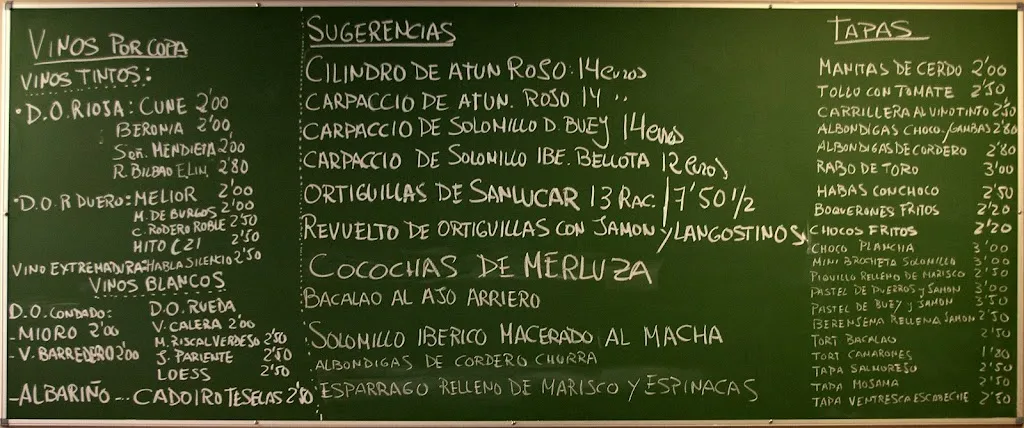 VINOS POR COPA
VINOS TINTOS:
• D.O. RIOJA: CUNE 2'00
BERONIA 2'00
Señ. MENDIETA 2'00
R. BILBAO E LIN. 2'80
• D.O. R DUERO: MELIOR 2'00
M. DE BURGOS 2'00
C. RODERO ROBLE 2'50
HITO C21 2'50
VINO EXTREMADURA: HABLA SILENCIO 2'50
VINOS BLANCOS
D.O. CONDADO:
- MIORO 2'00
- V. BARREDERO 2'00
D.O. RUEDA
V. CALERA 2'00
M. RISCAL VERDESO 2'50
J. PARIENTE 2'50
LOESS 2'50
- ALBARIÑO -.. CADOIRO TESELAS 2'80
SUGERENCIAS
CILINDRO DE ATUN ROJO: 14 euros
CARPACCIO DE ATUN. ROJO 14 ''
CARPACCIO DE SOLOMILLO D. BUEY 14 euros
CARPACCIO DE SOLOMILLO IBE. BELLOTA 12 euros
ORTIGUILLAS DE SANLUCAR 13 RAC. / 7'50 1/2
REVUELTO DE ORTIGUILLAS CON JAMON Y LANGOSTINOS
COCOCHAS DE MERLUZA
BACALAO AL AJO ARRIERO
SOLOMILLO IBERICO MACERADO AL MACHA
ALBONDIGAS DE CORDERO CHURRA
ESPARRAGO RELLENO DE MARISCO Y ESPINACAS
TAPAS
MANITAS DE CERDO 2'00
TOLLO CON TOMATE 2'50
CARRILLERA AL VINO TINTO 2'50
ALBONDIGAS CHOCO./GAMBAS 2'80
ALBONDIGAS DE CORDERO 2'80
RABO DE TORO 3'00
HABAS CON CHOCO 2'50
BOQUERONES FRITOS 2'20
CHOCOS FRITOS 2'20
CHOCO PLANCHA 3'00
MINI BROCHETA SOLOMILLO 3'00
PIQUILLO RELLENO DE MARISCO 2'50
PASTEL DE PUERROS Y JAMON 3'00
PASTEL DE BUEY Y JAMON 3'50
BERENJENA RELLENA JAMON 2'50
TORT BACALAO 2'50
TORT CAMARONES 1'80
TAPA SALMOREJO 2'50
TAPA MOJAMA 2'50
TAPA VENTRESCA ESCABECHE 2'50